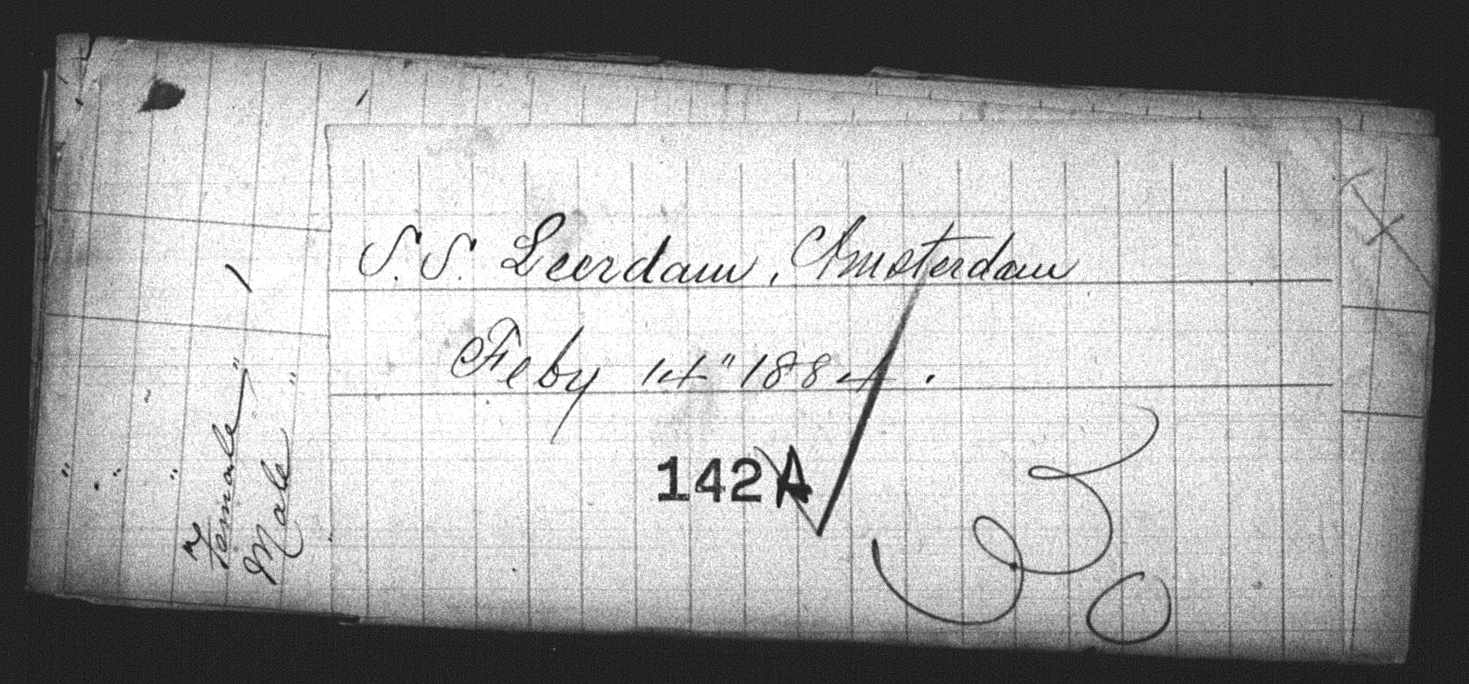 S.S. Leerdam, Amsterdam
Feby 14" 1884.
142A
30
Female "
Male "